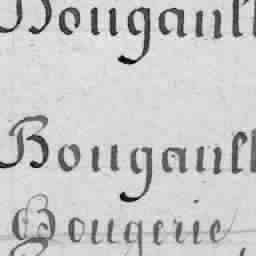 Bougault
Bougault
Bougerie